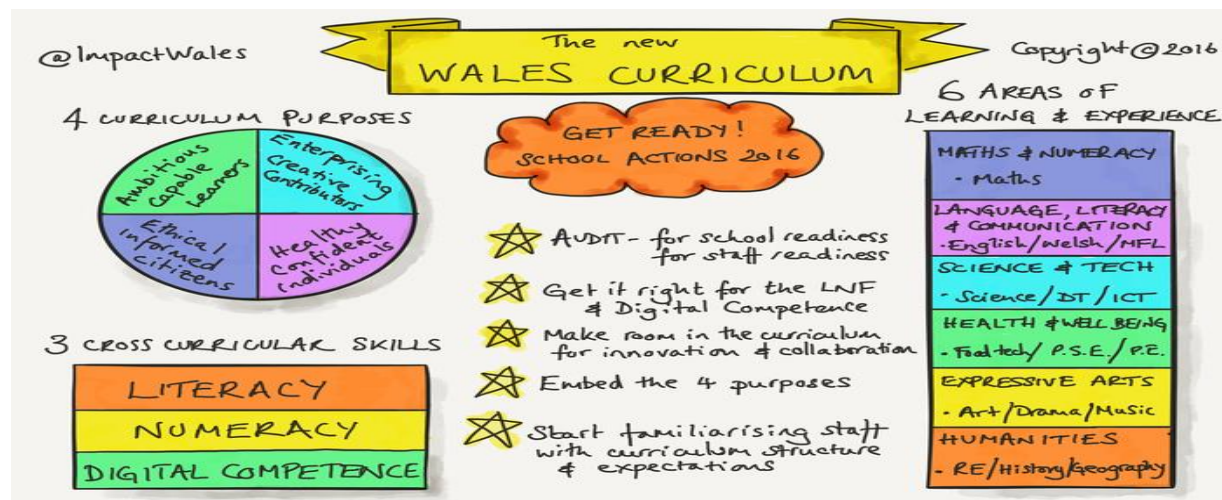 @ImpactWales
The new
WALES CURRICULUM
Copyright © 2016
4 CURRICULUM PURPOSES
Ambitious
Capable
Learners
Enterprising
Creative
Contributors
Ethical
informed
citizens
Healthy
Confident
individuals
3 CROSS CURRICULAR SKILLS
LITERACY
NUMERACY
DIGITAL COMPETENCE
GET READY!
SCHOOL ACTIONS 2016
AUDIT - for school readiness
for staff readiness
Get it right for the LNF
& Digital Competence
Make room in the curriculum
for innovation & collaboration
Embed the 4 purposes
Start familiarising staff
with curriculum structure
& expectations
6 AREAS OF
LEARNING & EXPERIENCE
MATHS & NUMERACY
• Maths
LANGUAGE, LITERACY
& COMMUNICATION
• English/Welsh/MFL
SCIENCE & TECH
• Science/DT/ICT
HEALTH & WELL BEING
• Food tech/P.S.E./P.E.
EXPRESSIVE ARTS
• Art/Drama/Music
HUMANITIES
• RE/History/Geography